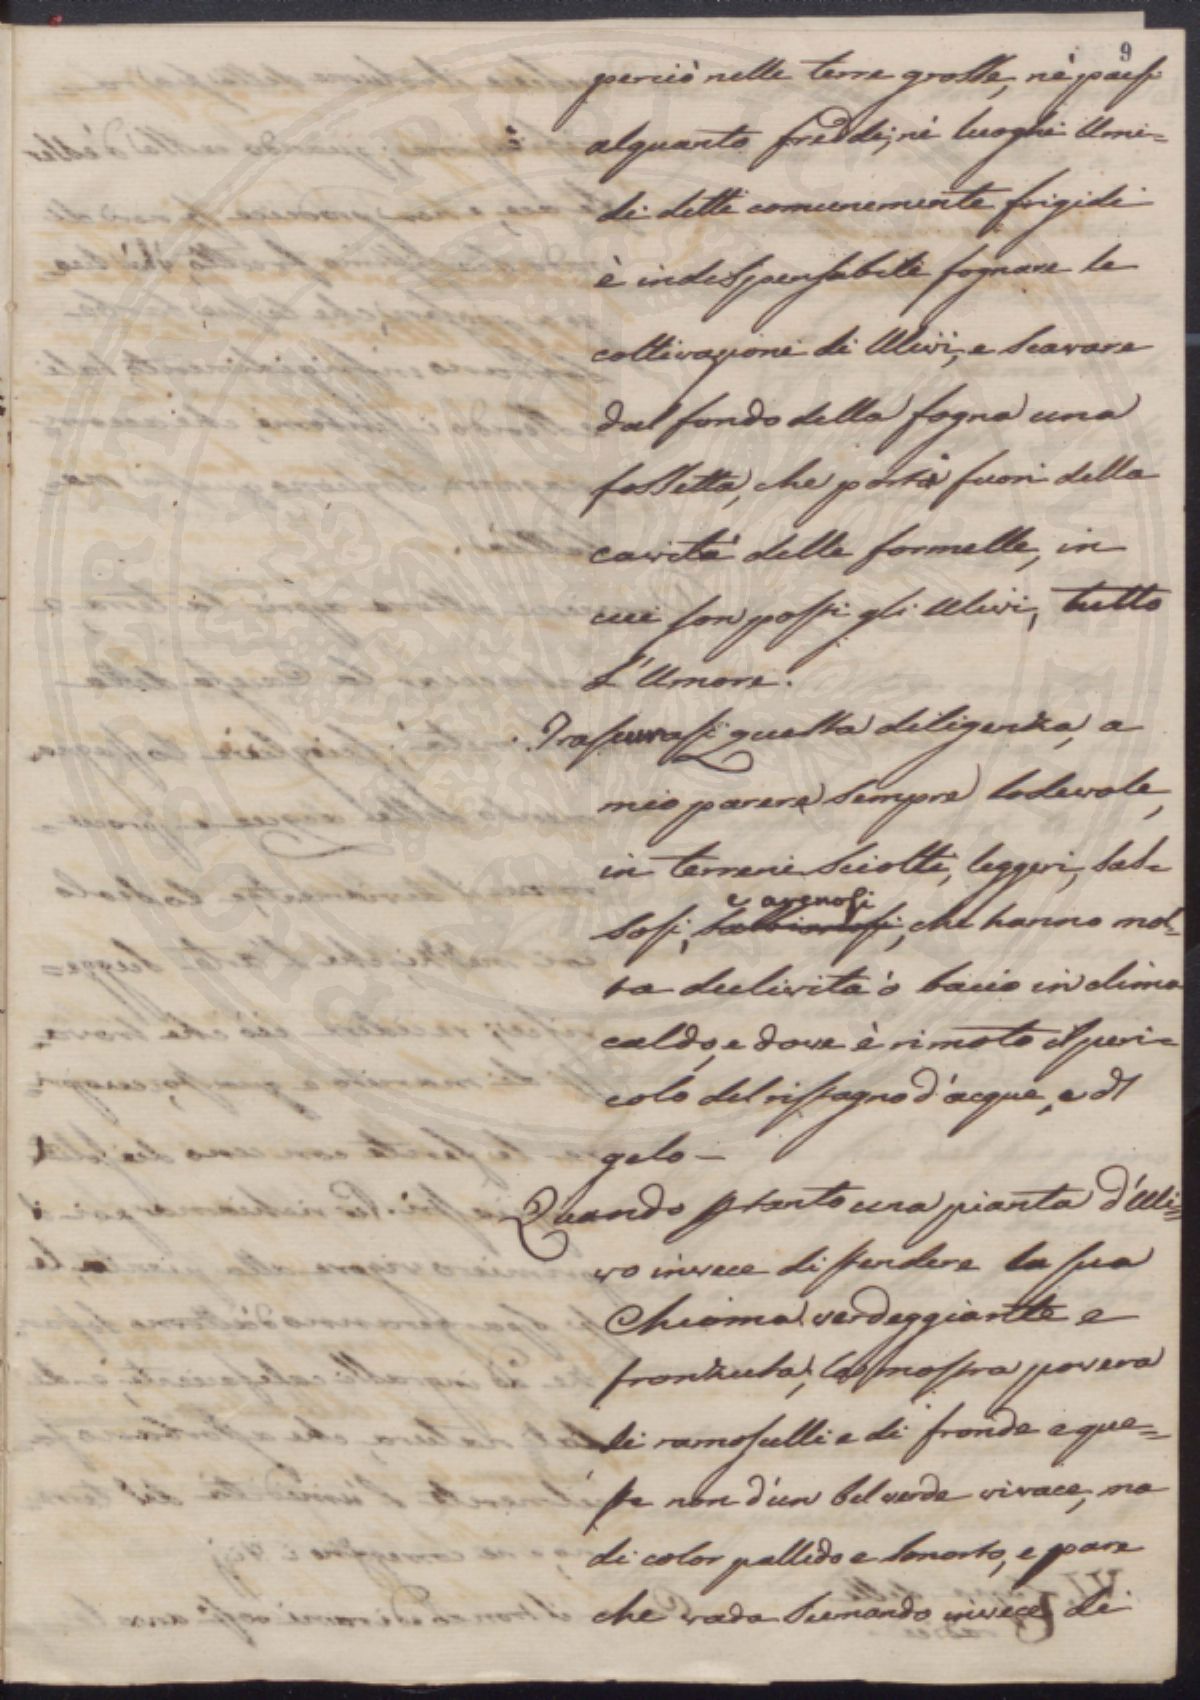 9
perciò nelle terre grosse, nè paesi
alquanto freddi, nè luoghi Umi=
di detti comunemente frigidi
è indispensabile fognare le
coltivazioni di Ulivi, e scavare
dal fondo della fogna una
fossetta, che porti fuori della
cavità delle formelle, in
cui son posti gli Ulivi, tutto
l'Umore.
Trascurasi questa diligenza, a
mio parere sempre lodevole,
in terreni sciolti, leggeri, sas=
e arenosi
sosi, che hanno mol=
ta declività ò bacio in clima
caldo, e dove è rimoto il peri=
colo del ristagno d'acque, e di
gelo —
Quando pianto una pianta d'Uli=
vo invece di stendere la sua
Chioma verdeggiante e
fronzuta, la mostra povera
di ramoscelli e di fronde e que=
ste non d'un bel verde vivace, ma
di color pallido e smorto, e pare
che vada scemando invece di